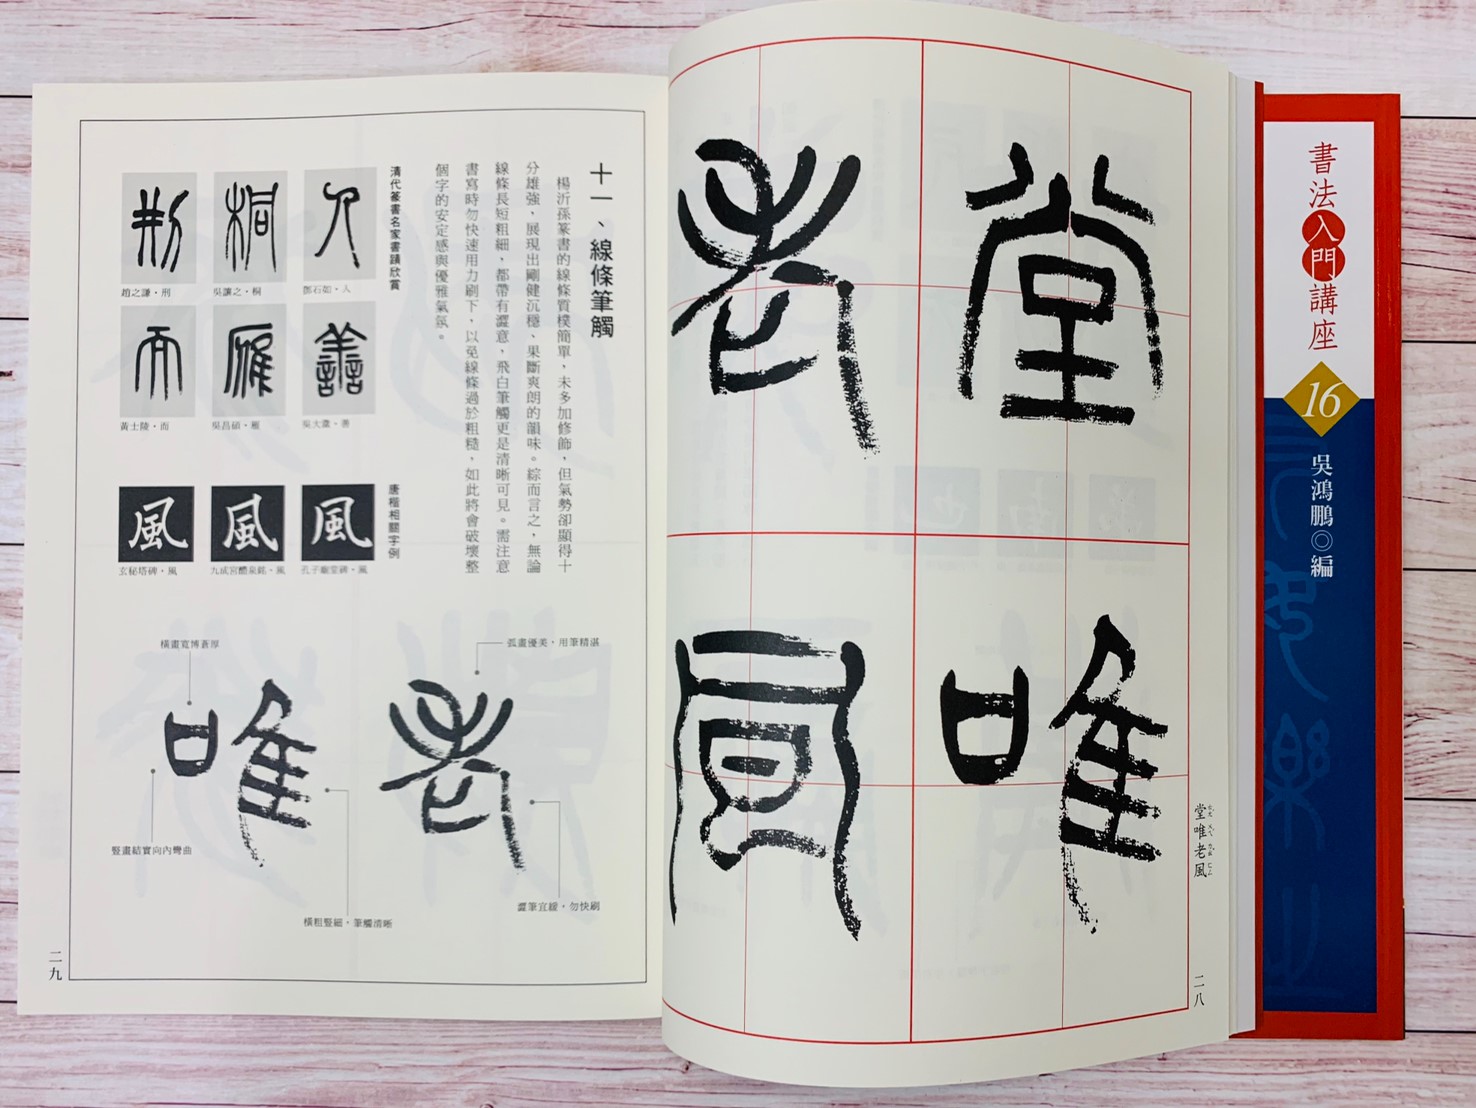 書法入門講座
16
吳鴻鵬◎編
堂唯
老風
堂唯老風
二八
十一、線條筆觸
楊沂孫篆書的線條質樸簡單，未多加修飾，但氣勢卻顯得十
分雄強，展現出剛健沉穩、果斷爽朗的韻味。綜而言之，無論
線條長短粗細，都帶有澀意，飛白筆觸更是清晰可見。需注意
書寫時勿快速用力刷下，以免線條過於粗糙，如此將會破壞整
個字的安定感與優雅氣氛。
清代篆書名家書蹟欣賞
人
鄧石如・人
桐
吳讓之・桐
刑
趙之謙・刑
善
吳大澂・善
雁
吳昌碩・雁
而
黃士陵・而
唐楷相關字例
風
孔子廟堂碑・風
風
九成宮醴泉銘・風
風
玄秘塔碑・風
老
弧畫優美，用筆精湛
澀筆宜緩，勿快刷
唯
橫畫寬博蒼厚
豎畫結實向內彎曲
橫粗豎細，筆觸清晰
二九